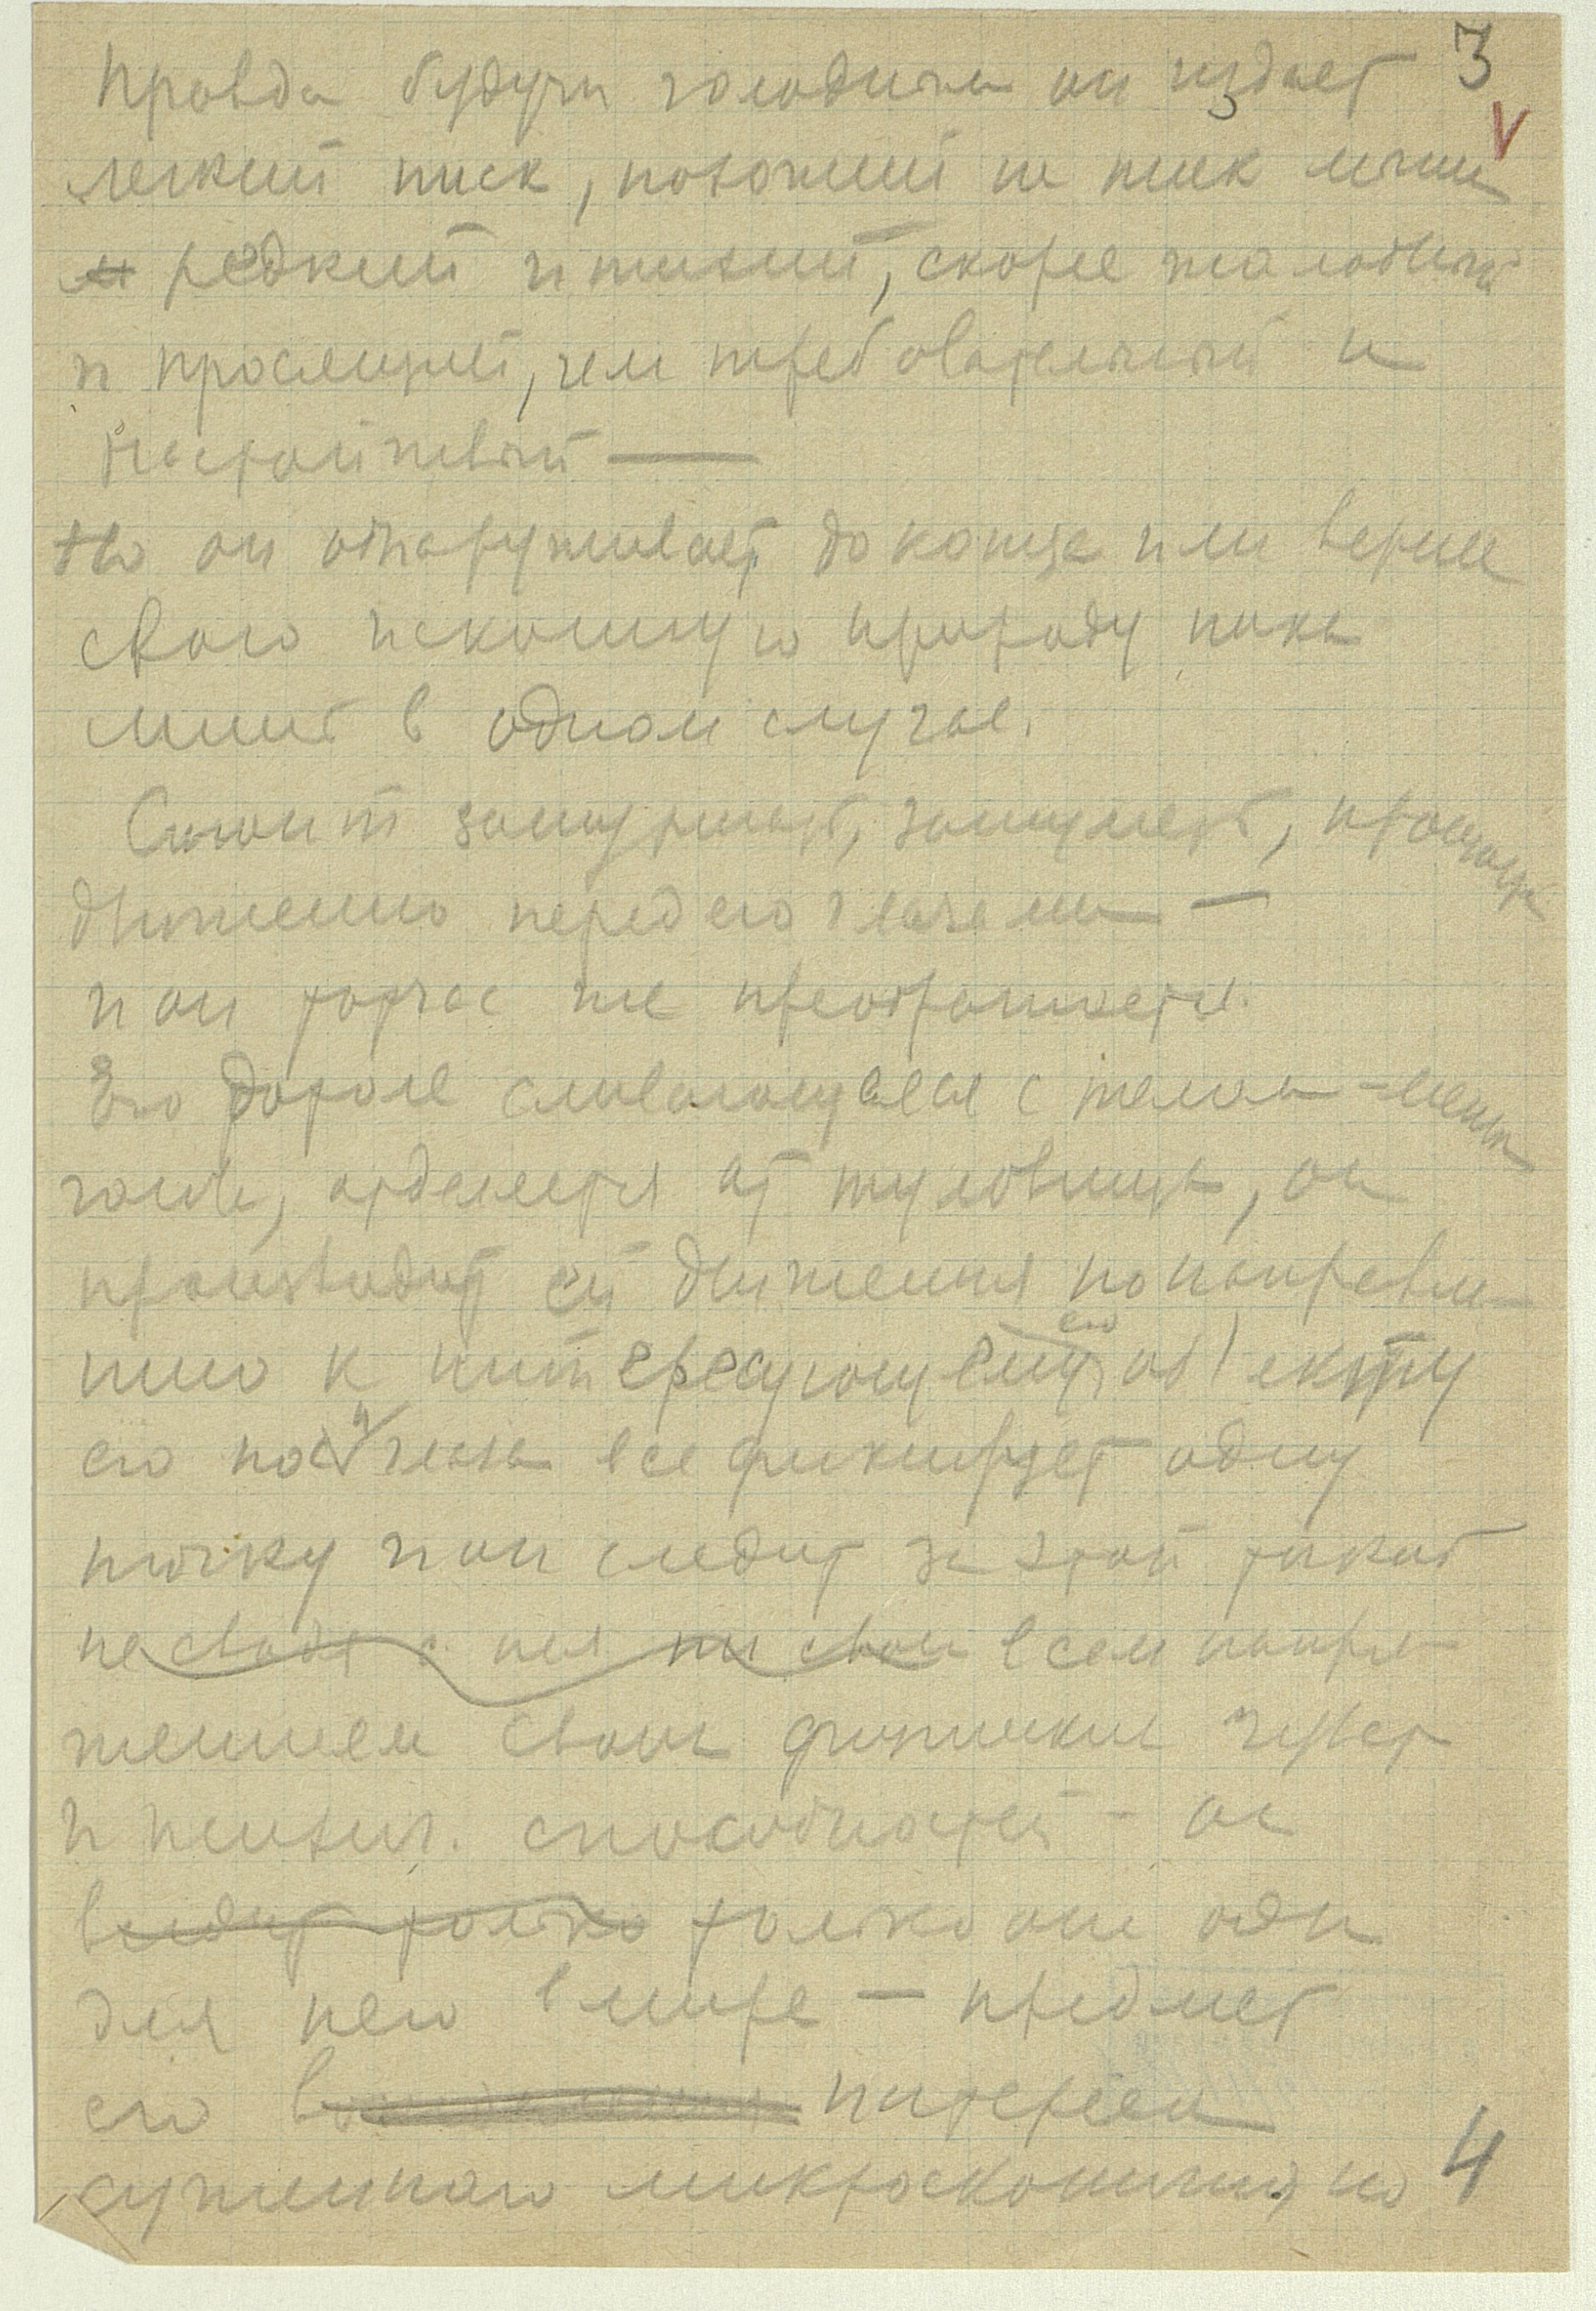 Правда будучи голодным он издает 3
легкий писк, похожий на писк мыши V
и редкий и тихий, скорее жалобный
и просящий, чем требовательный и
настойчивый —
Но он обнаруживает до конца или вернее
свою исконную природу пока
лишь в одном случае.
Стоит зашуршать, зашуметь,
движению перед его глазами —
и он тотчас же преображается.
Его дотоле сливающаяся с телом –
голова, отделяется от туловища, он
производит ей движения по направле-
нию к интересующему его объекту
его глаза все фиксирует одну
точку и он следит за этой точкой
не сводя с нея всем напря-
жением своих физических чувств
и психич. способностей – он
видит только только они одни
для него в мире — предмет
его интереса
суженного микроскопично но 4